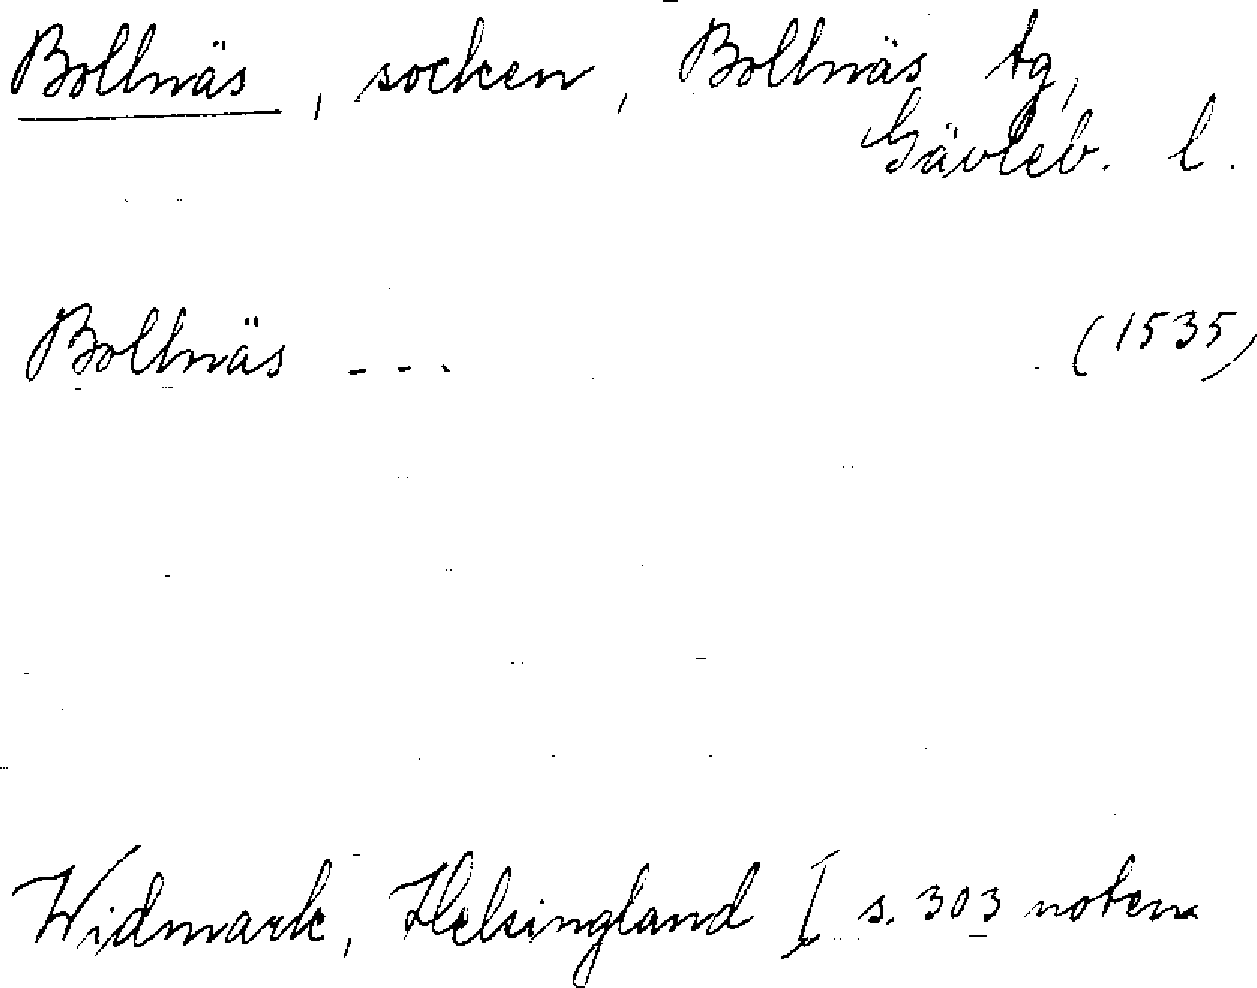 Bollnäs, socken, Bollnäs tg,
Gävleb. l.
Bollnäs --- (1535)
Widmark, Helsingland I s. 303 noten